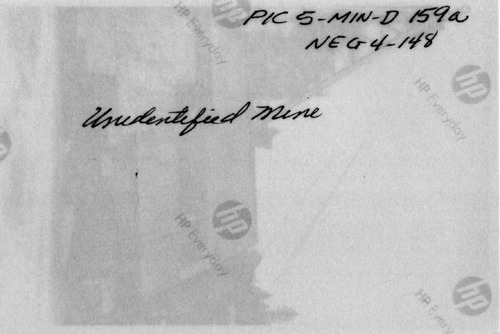 PIC 5-MIN-D 159a
NEG 4-148
Unidentified Mine
hp
HP Everyday
hp
HP Everyday
hp
HP Everyday
hp
HP Everyday